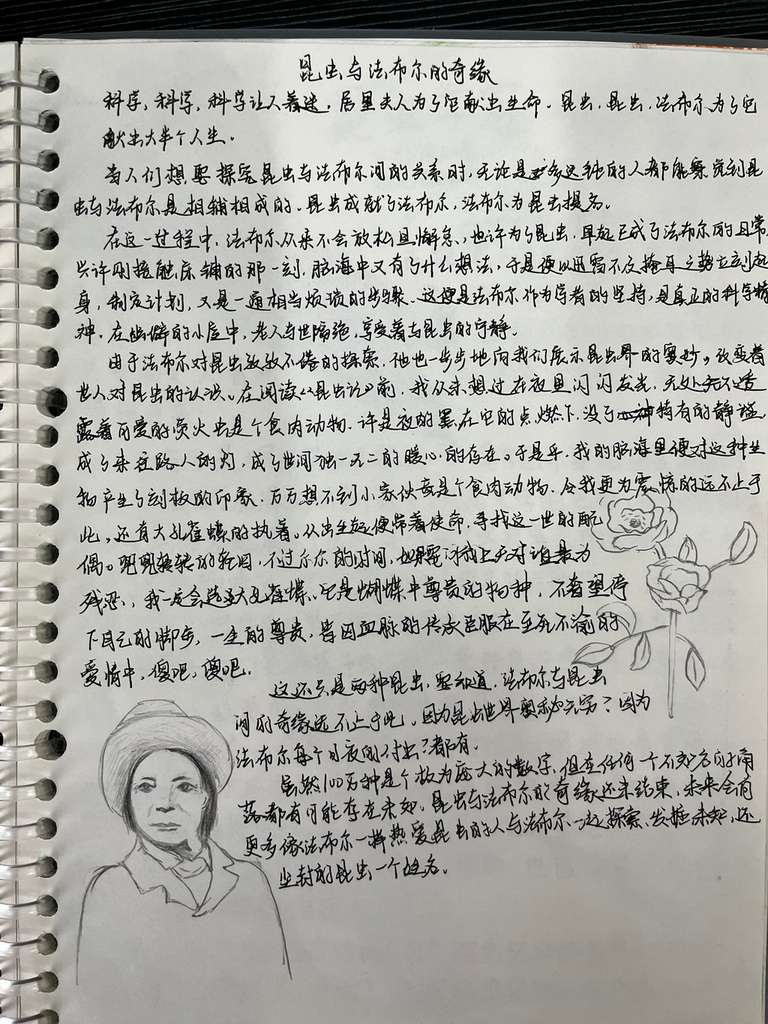 昆虫与法布尔的奇缘
科学,科学,科学让人着迷,居里夫人为了它献出生命。昆虫,昆虫,法布尔为了它
献出大半个人生。
当人们想要探究昆虫与法布尔间的关系时,无论是的人都能察觉到昆
虫与法布尔是相辅相成的。昆虫成就了法布尔,法布尔为昆虫提名。
在这一过程中,法布尔从来不会放松且懈怠,也许为了昆虫,早起已成了法布尔的日常,
也许刚接触床铺的那一刻,脑海中又有了什么想法,于是便以迅雷不及掩耳之势立刻起
身,制定计划,又是一通相当烦琐的步骤。这便是法布尔作为学者的坚持,是真正的科学精
神。在幽僻的小屋中,老人与世隔绝,享受着与昆虫的宁静。
由于法布尔对昆虫孜孜不倦的探索,他也一步步地向我们展示昆虫界的奥妙。改变着
世人对昆虫的认识。在阅读《昆虫记》前,我从未想过在夜里闪闪发光,无处不透
露着可爱的萤火虫是个食肉动物。许是夜的黑,在它的点燃下,没了特有的静谧,
成了来往路人的灯,成了世间独一无二的暖心的存在。于是乎,我的脑海里便对这种生
物产生了刻板的印象,万万想不到小家伙竟是个食肉动物。令我更为震惊的远不止于
此,还有大孔雀蝶的执着。从出生起便带着使命,寻找这一世的配
偶。兜兜转转的轮回,不过尔尔的时间,如果要问我上天对谁最为
残忍,我一定会选大孔雀蝶。它是蝴蝶中尊贵的物种,不奢望停
下自己的脚步,一生的尊贵,皆因血脉的传承臣服在至死不渝的
爱情中,傻吧,傻吧。
这还只是两种昆虫,要知道,法布尔与昆虫
间的奇缘远不止于此,因为昆虫世界奥秘无穷?因为
法布尔每个日夜的付出?都有。
虽然100万种是个极为庞大的数字,但在任何一个不知名的角
落都有可能存在未知。昆虫与法布尔的奇缘还未结束,未来会有
更多像法布尔一样热爱昆虫的人与法布尔一起探索、发掘未知,还
尘封的昆虫一个姓名。